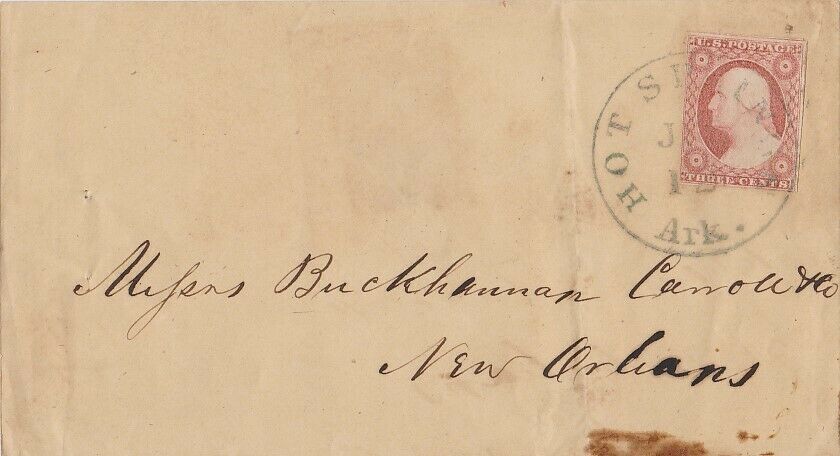 U.S. POSTAGE
THREE CENTS
HOT SP
Ark.
Messrs Buckhannan Carroll & Co
New Orleans